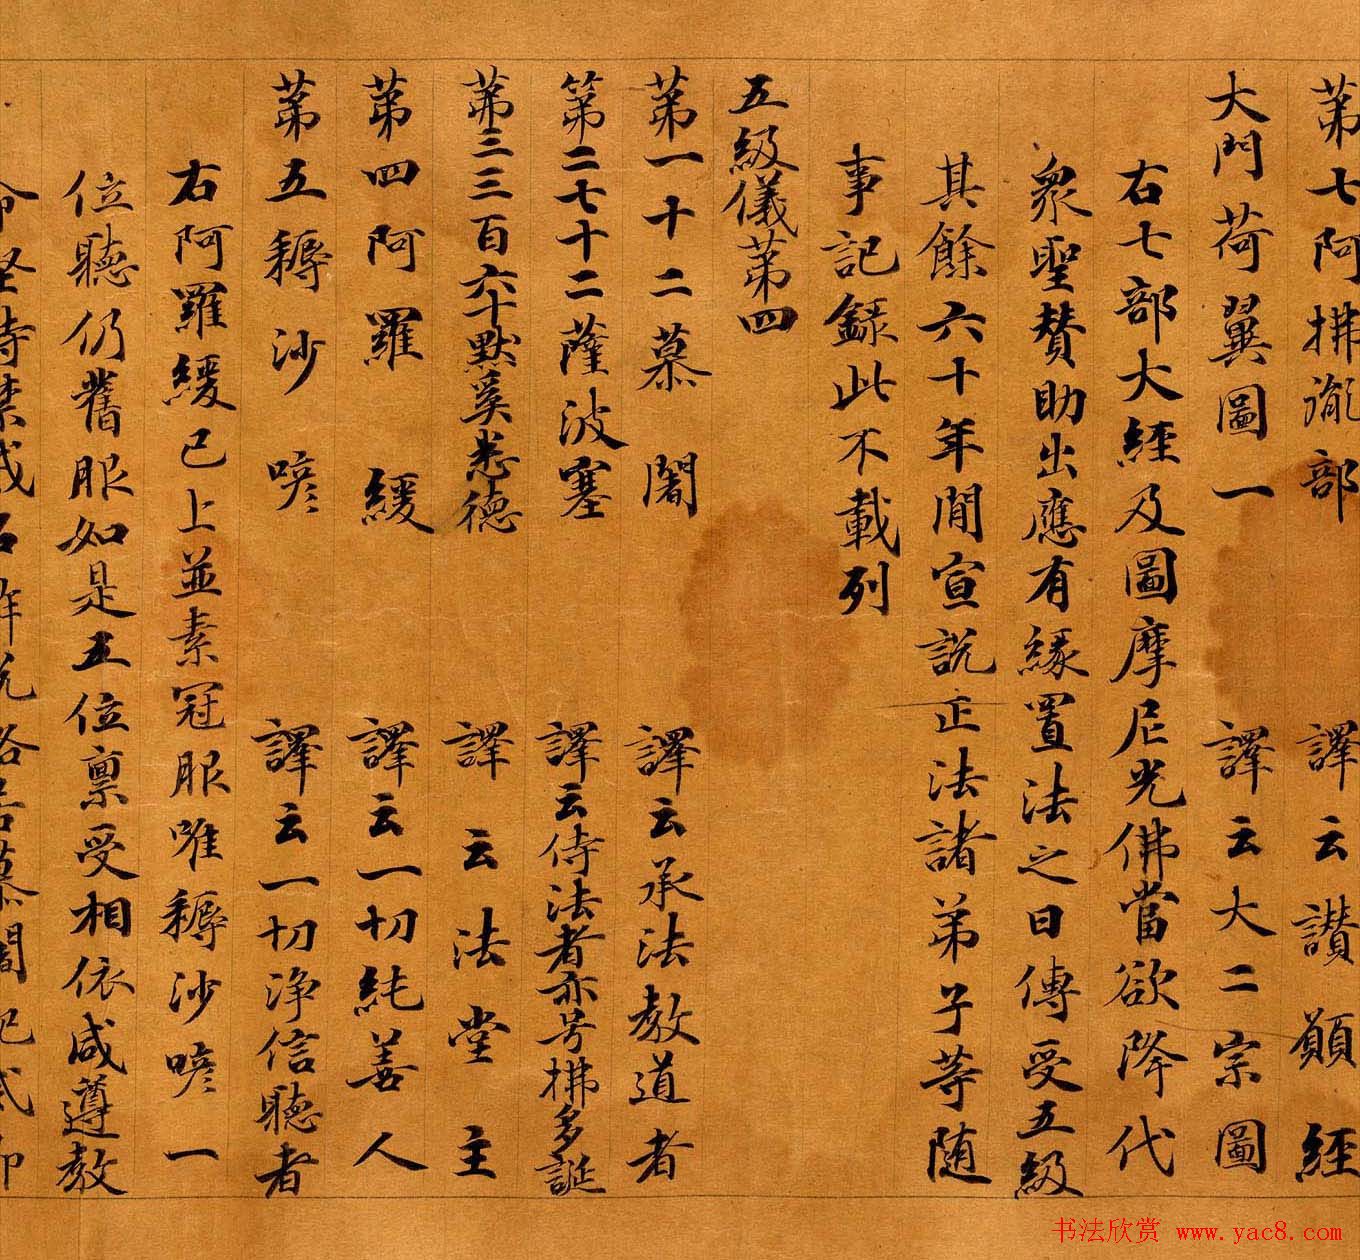 第七阿拂胤部 譯云讃願經
大門荷翼圖一 譯云大二宗圖
右七部大經及圖摩尼光佛當欲降代
衆聖賛助出應有緣置法之日傳受五級
其餘六十年間宣説正法諸弟子等随
事記録此不載列
五級儀第四
第一十二慕闍 譯云承法教道者
第二七十二薩波塞 譯云侍法者亦号拂多誕
第三三百六十默奚悉德 譯云法堂主
第四阿羅緩 譯云一切純善人
第五耨沙喭 譯云一切浄信聽者
右阿羅緩已上並素冠服唯耨沙喭一
位聽仍舊服如是五位禀受相依咸遵教
书法欣赏 www.yac8.com